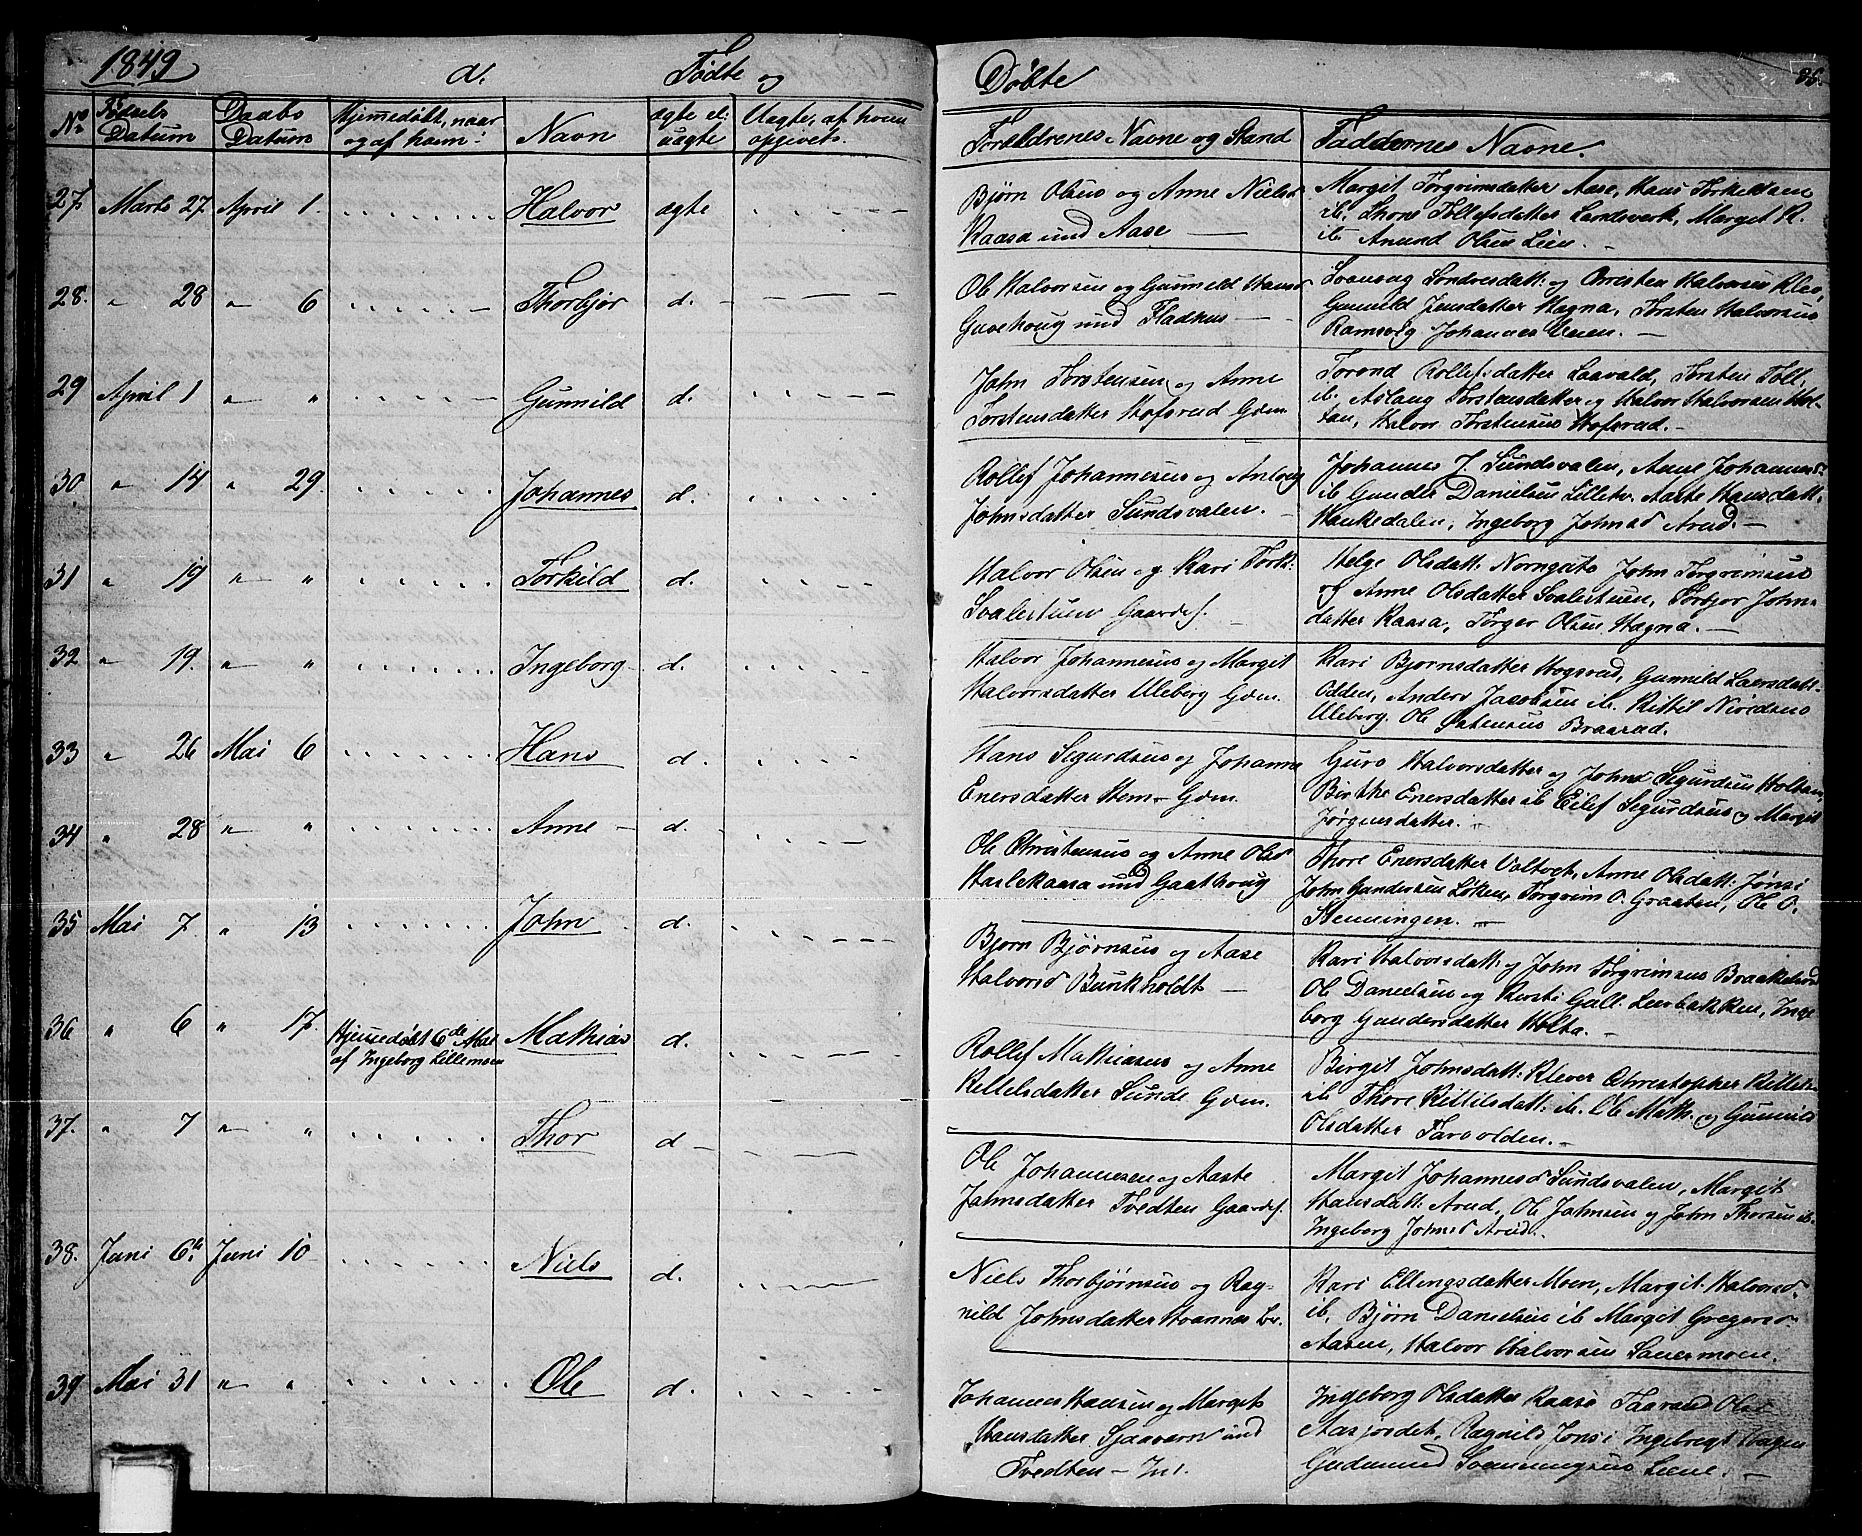 1849 d. Fødte og Døbte 85.
No Fødsels Datum Daabs Datum Hjemmedøbt, naar og af hvem? Navn ægte el: uægte Uægte, af hvem opgivet. Forældrenes Navne og Stand Faddernes Navne.
27. Marts 27 April 1. Halvor ægte
Bjørn Olsen og Anne Nielsd
Kaasa und Aase
Margit Torgrimsdatter Aase, Hans Torkelsen
ib. Thone Tollefsdatter Landsverk, Margit K.
ib Anund Olsen Lien.
28. " 28 " 6 Thorbjør d.
Ole Halvorsen og Gunnild Hansd
Gavehoug und Fladhus
Svanaug Sondresdatt: og Christen Halvorsen Klev,
Gunnild Jensdatter Hagna, Torsten Halvorsen
Ramsvig Johannes Veien.
29 April 1 " " Gunnild d.
John Torstensen og Anne
Torstensdatter Hofsrud Gdm.
Torond Rollefsdatter Laavald, Torsten Toll.
ib. Aslaug Torstensdatter og Halvor Halvorsen Hol-
tan, Halvor Torstensen Hofsrud.
30. " 14 " 29. Johannes d.
Rollef Johannesen og Anlaug
Johnsdatter Sundsvalen.
Johannes J. Sundsvalen, Anne Johannesd
ib Gunder Danielsen Lilletv. Aaste Hansdatt.
Haukedalen, Ingeborg Johnsd Arud.
31 " 19 " " Torkild d.
Halvor Olsen og Kari Tork:
Svalestuen Gaardsf.
Helge Olsdatt: Norngate John Torgrimsen
og Anne Olsdatter Svalestuen, Torbjør John-
datter Kaasa, Torger Olsen Hagna.
32 " 19. " " Ingeborg d.
Halvor Johannesen og Margit
Halvorsdatter Uleberg Gdm.
Kari Bjørnsdatter Hogsrud, Gunnild Larsdatt.
Odden, Anders Jacobsen ib. Kittil Niridsen
Uleberg. Ole Østensen Braarud.
33 " 26 Mai 6 Hans d.
Hans Sigurdsen og Johanne
Enersdatter Hem Gdm.
Guro Halvorsdatter og Johns Sigurdsen Holtan,
Birthe Enersdatter ib Eilef Sigurdsen og Margit
Jørgensdatter.
34 " 28 " " Anne d.
Ole Christensen og Anne Olsd
Haslekaasa und Gaathoug
Thore Enersdatter Valtvet, Anne Olsdatt. Jønsi
John Gundersen Løken, Torgrim O. Graaten, Ole O.
Stenningen.
35 Mai 7. " 13 John d.
Bjørn Bjørnsen og Aase
Halvorsd Bunkholdt
Kari Halvorsdatt: og John Torgrimsen Braakelund
Ole Danielsen og Kirsti Gull. Leerbakken, Inge
borg Gundersdatter Holta.
36 " 6 " 17. Hjemmedøbt 6de Mai af Ingeborg Lillemoen Mathias d.
Rollef Mathiasen og Anne
Kittelsdatter Sunde Gdm.
Birgit Johnsdatt: Klever Christopher Kittels.
ib Thore Kittilsdatt: ib. Ole Math. og Gunnild
Olsdatter Tarvolden.
37. " 7 " " Thor d
Ole Johannesen og Aaste
Johnsdatter Tvedten Gaardsf.
Margit Johannesd Sundsvalen, Margit
Hansdatt: Arud, Ole Johnsen og John Thorsen ib.
Ingeborg Johnsd Arud.
38. Juni 6te Juni 10 Niels d.
Niels Thorbjørnsen og Rag-
nild Johnsdatter Hvannes
Kari Ellingsdatter Moen, Margit Halvorsd.
ib. Bjørn Danielsen ib Margit Gregersd
Aasen, Halvor Halvorsen Sanermoen.
39 Mai 31 " " Ole d.
Johannes Hansen og Margit
Hansdatter Sjaavern und
Tvedten
Ingeborg Olsdatter Kaasa Taarand Olsd
Aasjordet, Ragnild Jonsi Ingebregt Hagen
Gudmund Svenningsen Liene.